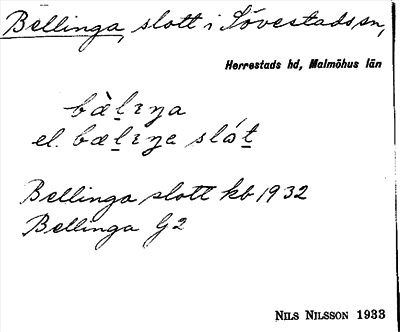 Bellinga, slott i Sövestads sn,
Herrestads hd, Malmöhus län
bὰḻɪŋa
el. bæḻɪŋe slót̠
Bellinga slott kb 1932
Bellinga G2
NILS NILSSON 1933